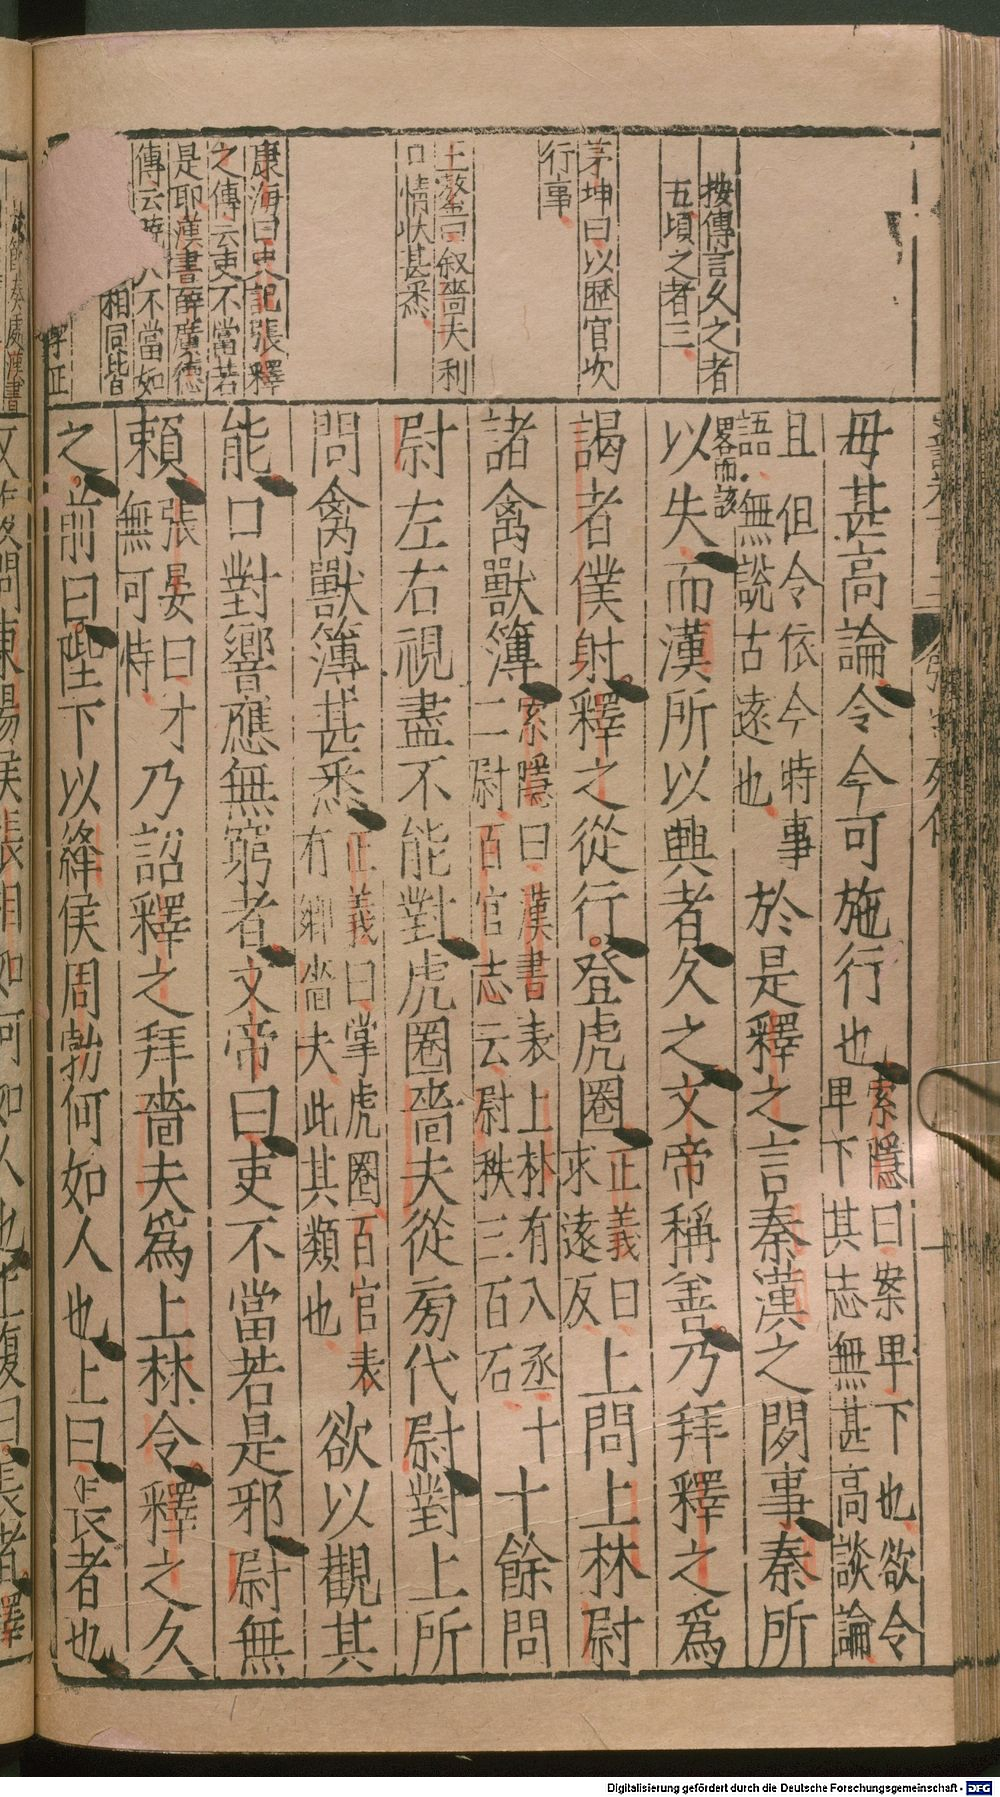 按傳言久之者
五頃之者三
茅坤曰以歷官次
行事
王鏊曰叙嗇夫利
口情狀甚悉
康海曰史記張釋
之傳云吏不當若
是耶漢書薛廣德
傳云 不當如
相同皆
字正
毋甚高論令今可施行也索隱曰案卑下也欲令
卑下其志無甚高談論
且但令依今時事
語無說古遠也
於是釋之言秦漢之閒事秦所
畧而該
以失而漢所以興者久之文帝稱善乃拜釋之爲
謁者僕射釋之從行登虎圈正義曰
求遠反
上問上林尉
諸禽獸簿索隱曰漢書表上林有八丞十
二尉百官志云尉秩三百石
十餘問
尉左右視盡不能對虎圈嗇夫從旁代尉對上所
問禽獸簿甚悉正義曰掌虎圈百官表
有鄉嗇夫此其類也
欲以觀其
能口對響應無窮者文帝曰吏不當若是邪尉無
賴張晏曰才
無可恃
乃詔釋之拜嗇夫爲上林令釋之久
之前曰陛下以絳侯周勃何如人也上曰長者也
Digitalisierung gefördert durch die Deutsche Forschungsgemeinschaft - DFG